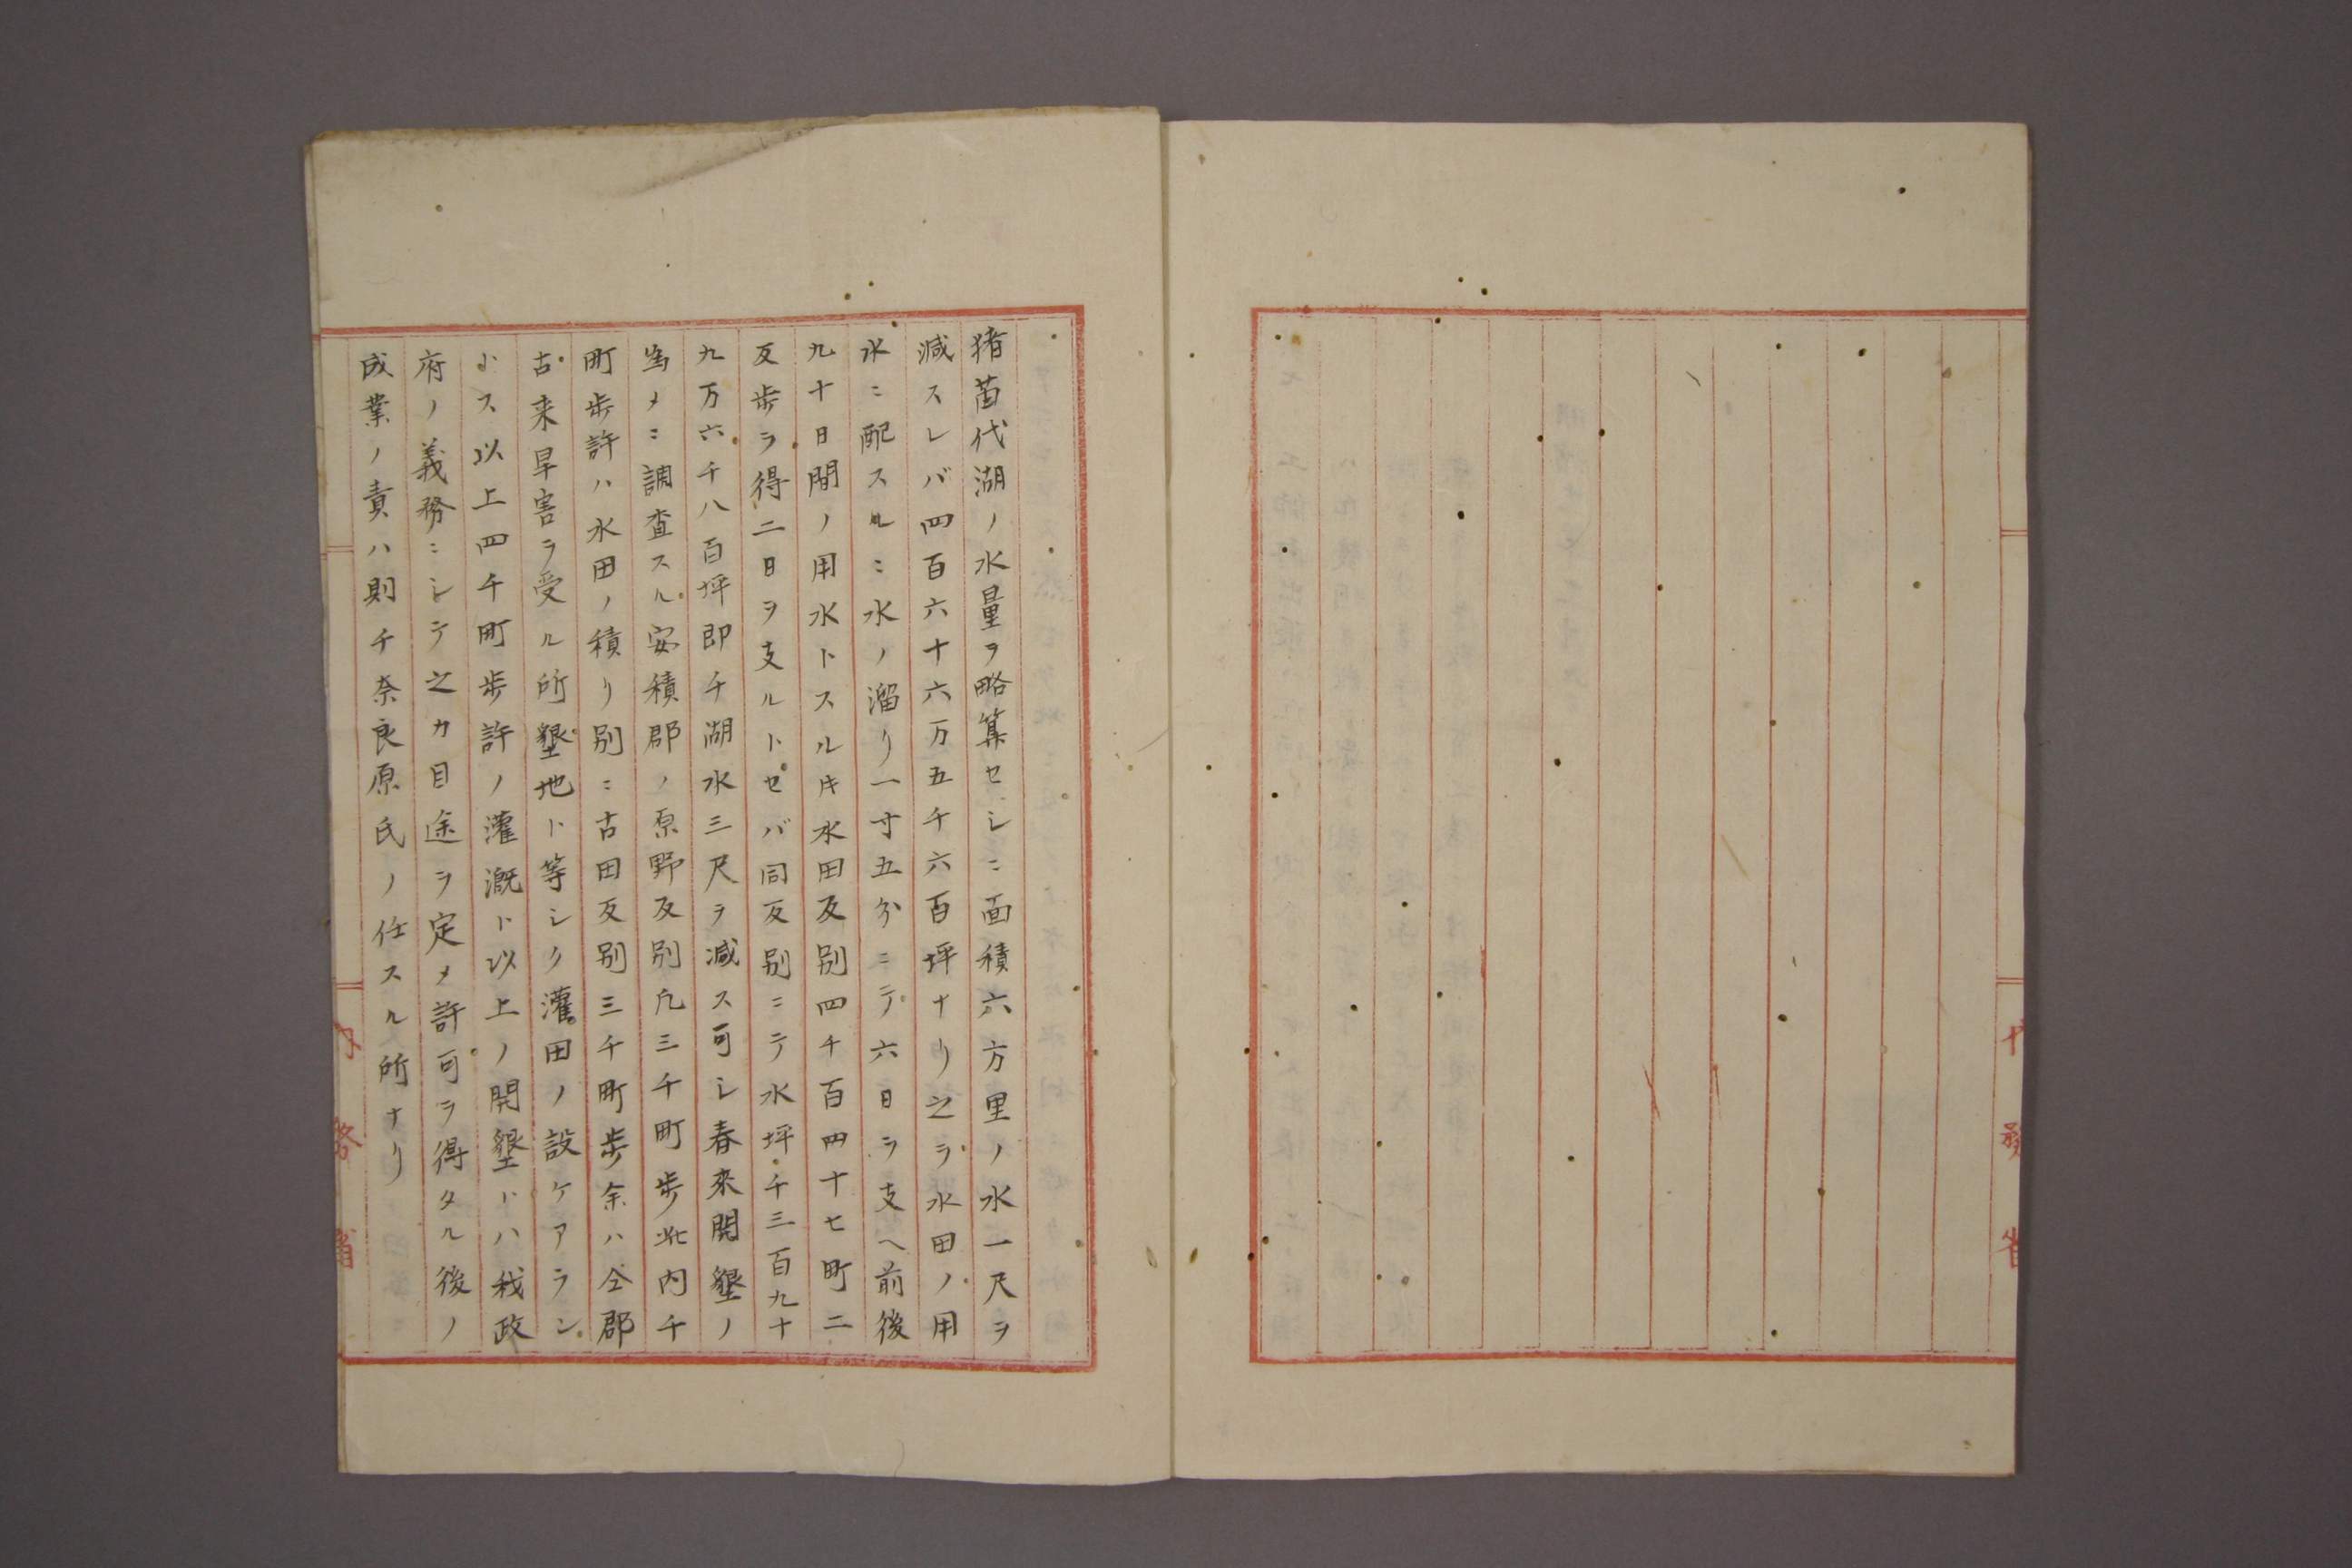 猪苗代湖ノ水量ヲ略算セシニ面積六方里ノ水一尺ヲ
減スレバ四百六十六万五千六百坪ナリ之ヲ水田ノ用
水ニ配スルニ水ノ溜リ一寸五分ニテ六日ヲ支ヘ前後
九十日間ノ用水トスルキ水田反別四千百四十七町二
反歩ヲ得二日ヲ支ルトセバ同反別ニテ水坪千三百九十
九万六千八百坪即チ湖水三尺ヲ減ス可シ春來開墾ノ
為メニ調査スル安積郡ノ原野反別凡三千町歩此内千
町歩許ハ水田ノ積リ別ニ古田反別三千町歩余ハ仝郡
古来旱害ヲ受ル所墾地ト等シク灌田ノ設ケアラン
ヿス以上四千町歩許ノ灌漑ト以上ノ開墾トハ我政
府ノ義務ニシテ之カ目途ヲ定メ許可ヲ得タル後ノ
成業ノ責ハ則チ奈良原氏ノ任スル所ナリ
内務省